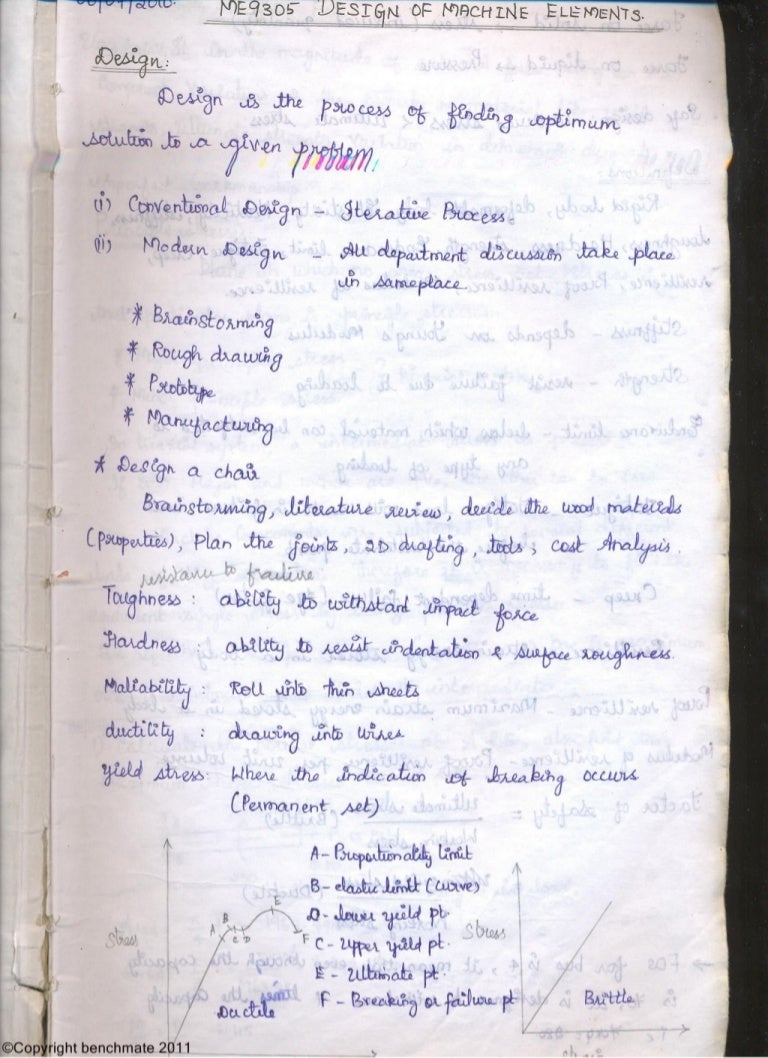 ME9305 DESIGN OF MACHINE ELEMENTS.
Design:
Design is the process of finding optimum
solution to a given problem.
(i) Conventional Design – Iterative Process.
(ii) Modern Design – All department discussion take place
in sameplace.
* Brainstorming
* Rough drawing
* Prototype
* Manufacturing
* Design a chair
Brainstorming, literature review, decide the wood materials
(properties), Plan the joints, 2D drafting, tools, cost Analysis.
resistance to fracture
Toughness : ability to withstant impact force
Hardness : ability to resist indentation & surface roughness.
Maliability : Roll into thin sheets
ductility : drawing into wires
yield stress: Where the indication of breaking occurs
(Permanent set)
A – Proportionality limit
B – elastic limit (curve)
D – lower yield pt.
C – Upper yield pt.
E – Ultimate pt.
F – Breaking or failure pt
Stress
A B C D E F
Ductile
Stress
Brittle
©Copyright benchmate 2011